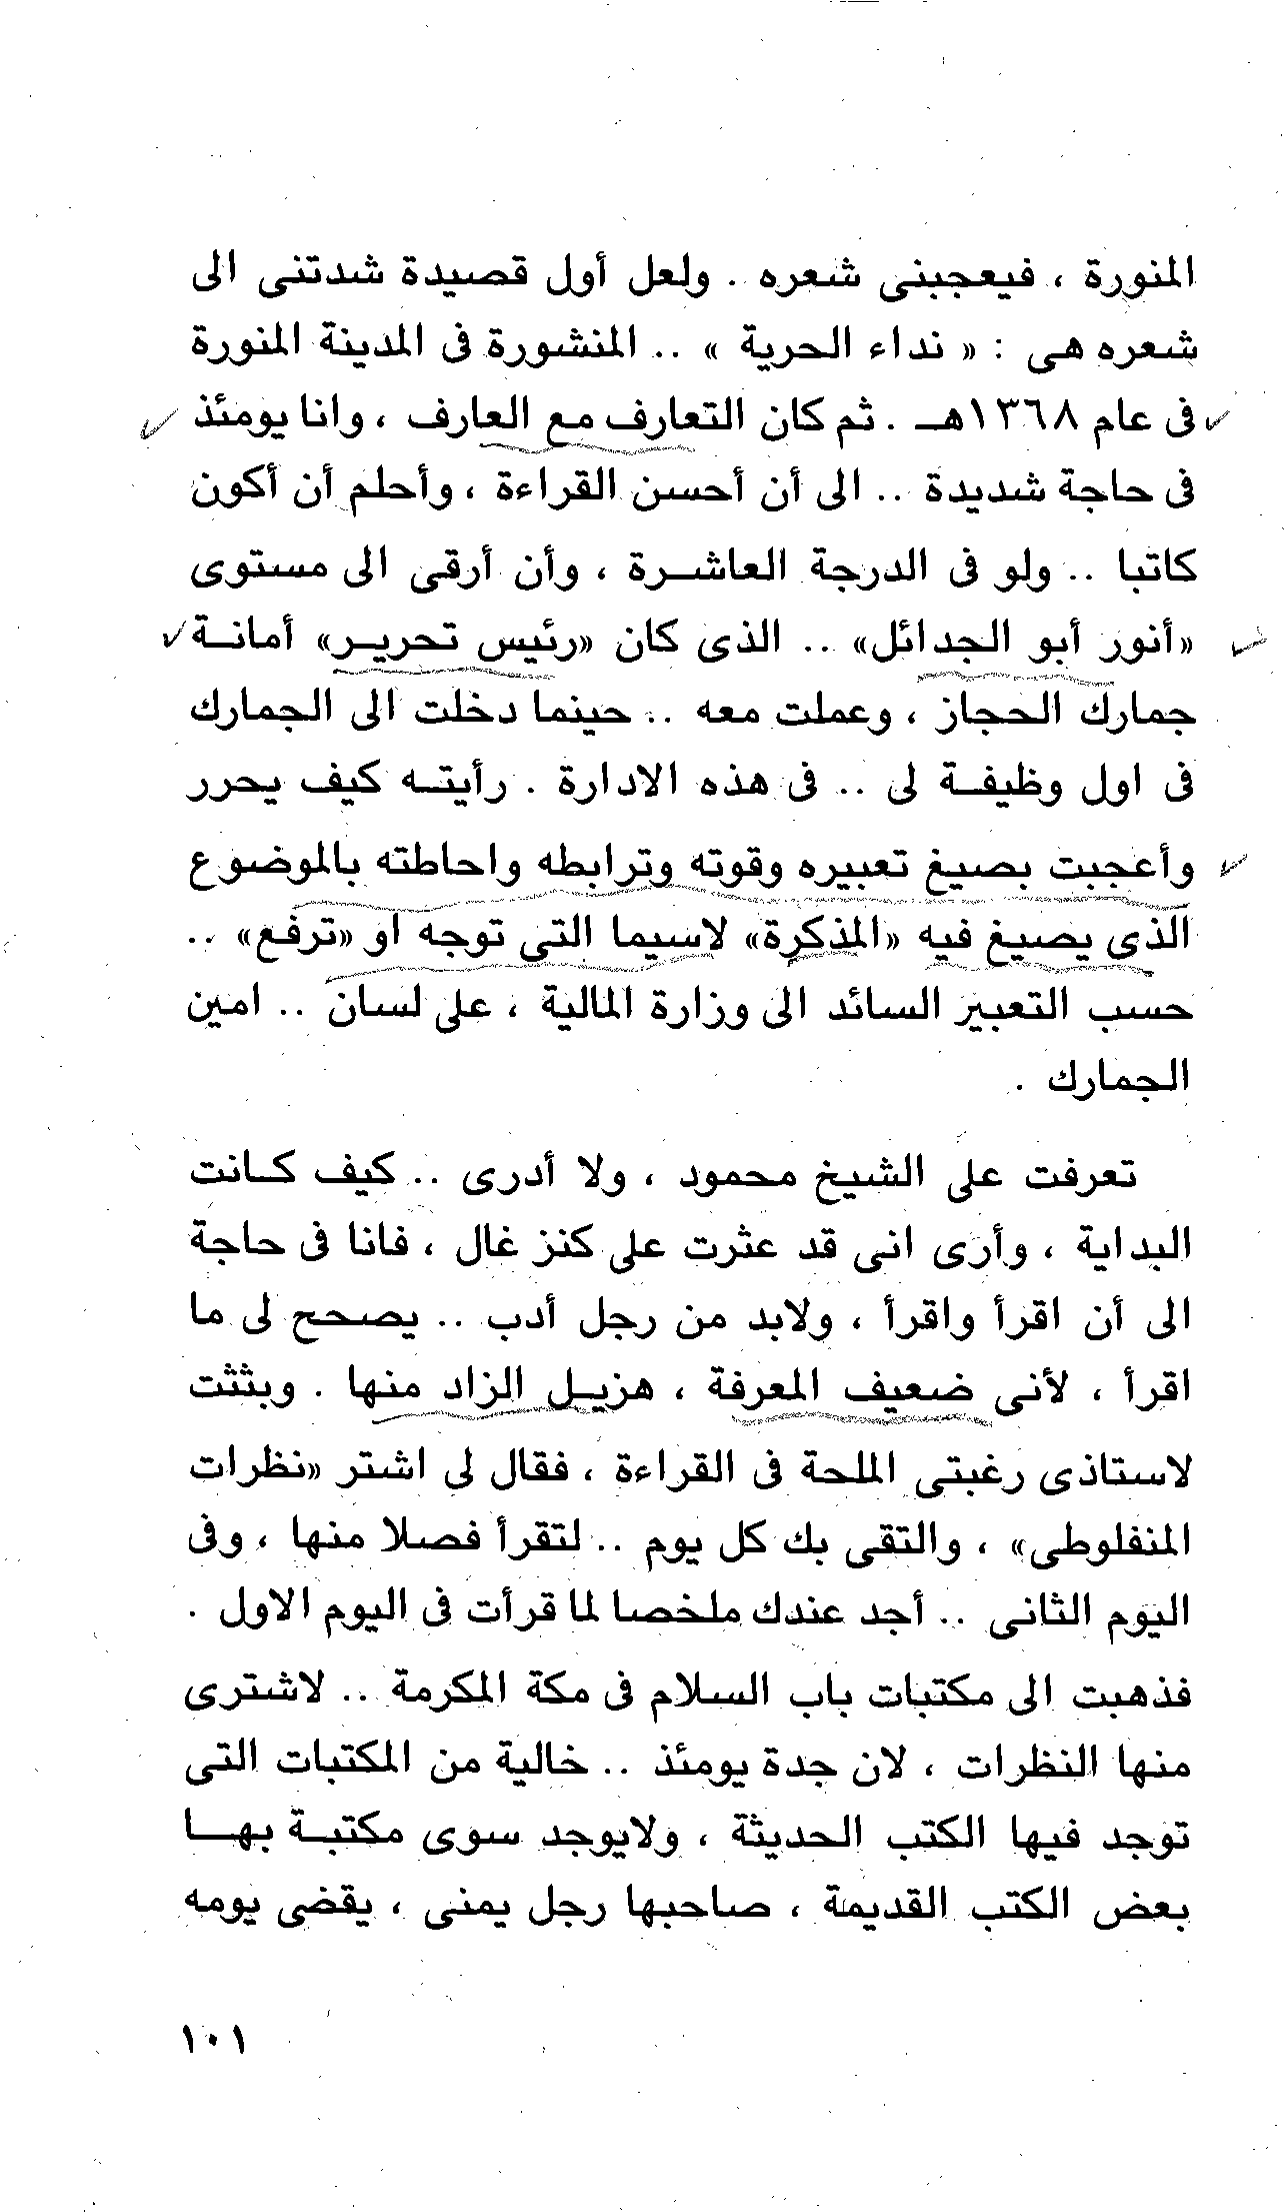 المنورة ، فيعجبنى شعره . ولعل أول قصيدة شدتنى الى
شعره هى : « نداء الحرية » .. المنشورة فى المدينة المنورة
فى عام ١٣٦٨هـ . ثم كان التعارف مع العارف ، وانا يومئذ
فى حاجة شديدة .. الى أن أحسن القراءة ، وأحلم أن أكون
كاتبا .. ولو فى الدرجة العاشرة ، وأن أرقى الى مستوى
«أنور أبو الجدائل» .. الذى كان «رئيس تحرير» أمانة
جمارك الحجاز ، وعملت معه .. حينما دخلت الى الجمارك
فى اول وظيفة لى .. فى هذه الادارة . رأيته كيف يحرر
وأعجبت بصيغ تعبيره وقوته وترابطه واحاطته بالموضوع
الذى يصيغ فيه «المذكرة» لاسيما التى توجه او «ترفع» ..
حسب التعبير السائد الى وزارة المالية ، على لسان .. امين
الجمارك .
تعرفت على الشيخ محمود ، ولا أدرى .. كيف كانت
البداية ، وأرى انى قد عثرت على كنز غال ، فانا فى حاجة
الى أن اقرأ واقرأ ، ولابد من رجل أدب .. يصحح لى ما
اقرأ ، لأنى ضعيف المعرفة ، هزيل الزاد منها . وبثثت
لاستاذى رغبتى الملحة فى القراءة ، فقال لى اشتر «نظرات
المنفلوطى» ، والتقى بك كل يوم .. لتقرأ فصلا منها ، وفى
اليوم الثانى .. أجد عندك ملخصا لما قرأت فى اليوم الاول .
فذهبت الى مكتبات باب السلام فى مكة المكرمة .. لاشترى
منها النظرات ، لان جدة يومئذ .. خالية من المكتبات التى
توجد فيها الكتب الحديثة ، ولايوجد سوى مكتبة بها
بعض الكتب القديمة ، صاحبها رجل يمنى ، يقضى يومه
١٠١